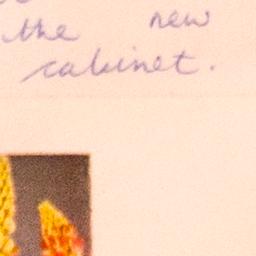 the new
cabinet.